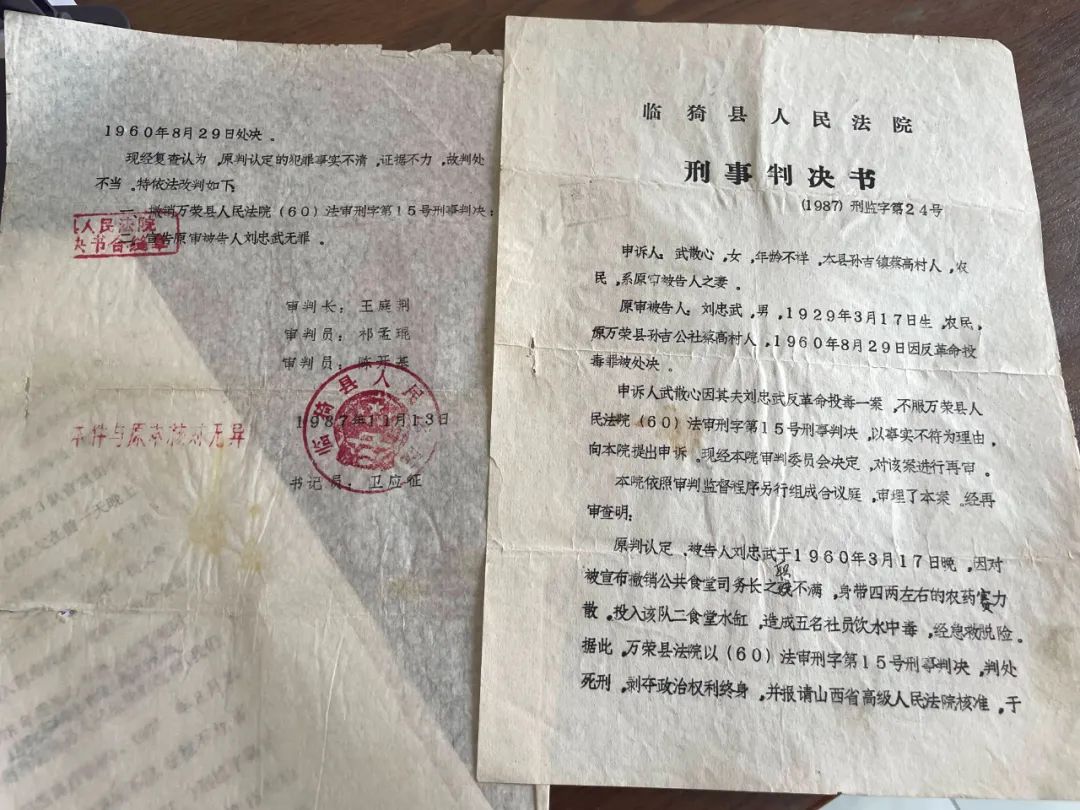 临猗县人民法院
刑事判决书
(1987)刑监字第24号
申诉人：武散心，女，年龄不祥，本县孙吉镇蔡高村人，农
民，系原审被告人之妻。
原审被告人：刘忠武，男，1929年3月17日生，农民，
原万荣县孙吉公社蔡高村人，1960年8月29日因反革命投
毒罪被处决。
申诉人武散心因其夫刘忠武反革命投毒一案，不服万荣县人
民法院(60)法审刑字第15号刑事判决，以事实不符为理由，
向本院提出申诉。现经本院审判委员会决定，对该案进行再审。
本院依照审判监督程序另行组成合议庭，审理了本案。经再
审查明：
原判认定，被告人刘忠武于1960年3月17日晚，因对
被宣布撤销公共食堂司务长之职不满，身带四两左右的农药赛力
散，投入该队二食堂水缸，造成五名社员饮水中毒，经急救脱险。
据此，万荣县法院以(60)法审刑字第15号刑事判决，判处
死刑，剥夺政治权利终身，并报请山西省高级人民法院核准，于
1960年8月29日处决。
现经复查认为，原判认定的犯罪事实不清，证据不力，故判处
不当。特依法改判如下：
一、撤销万荣县人民法院(60)法审刑字第15号刑事判决；
二、宣告原审被告人刘忠武无罪。
人民法院
决书合缝章
审判长：王庭荆
审判员：祁孟琨
审判员：陈开基
临猗县人民
1987年11月13日
本件与原本核对无异
书记员：卫应征